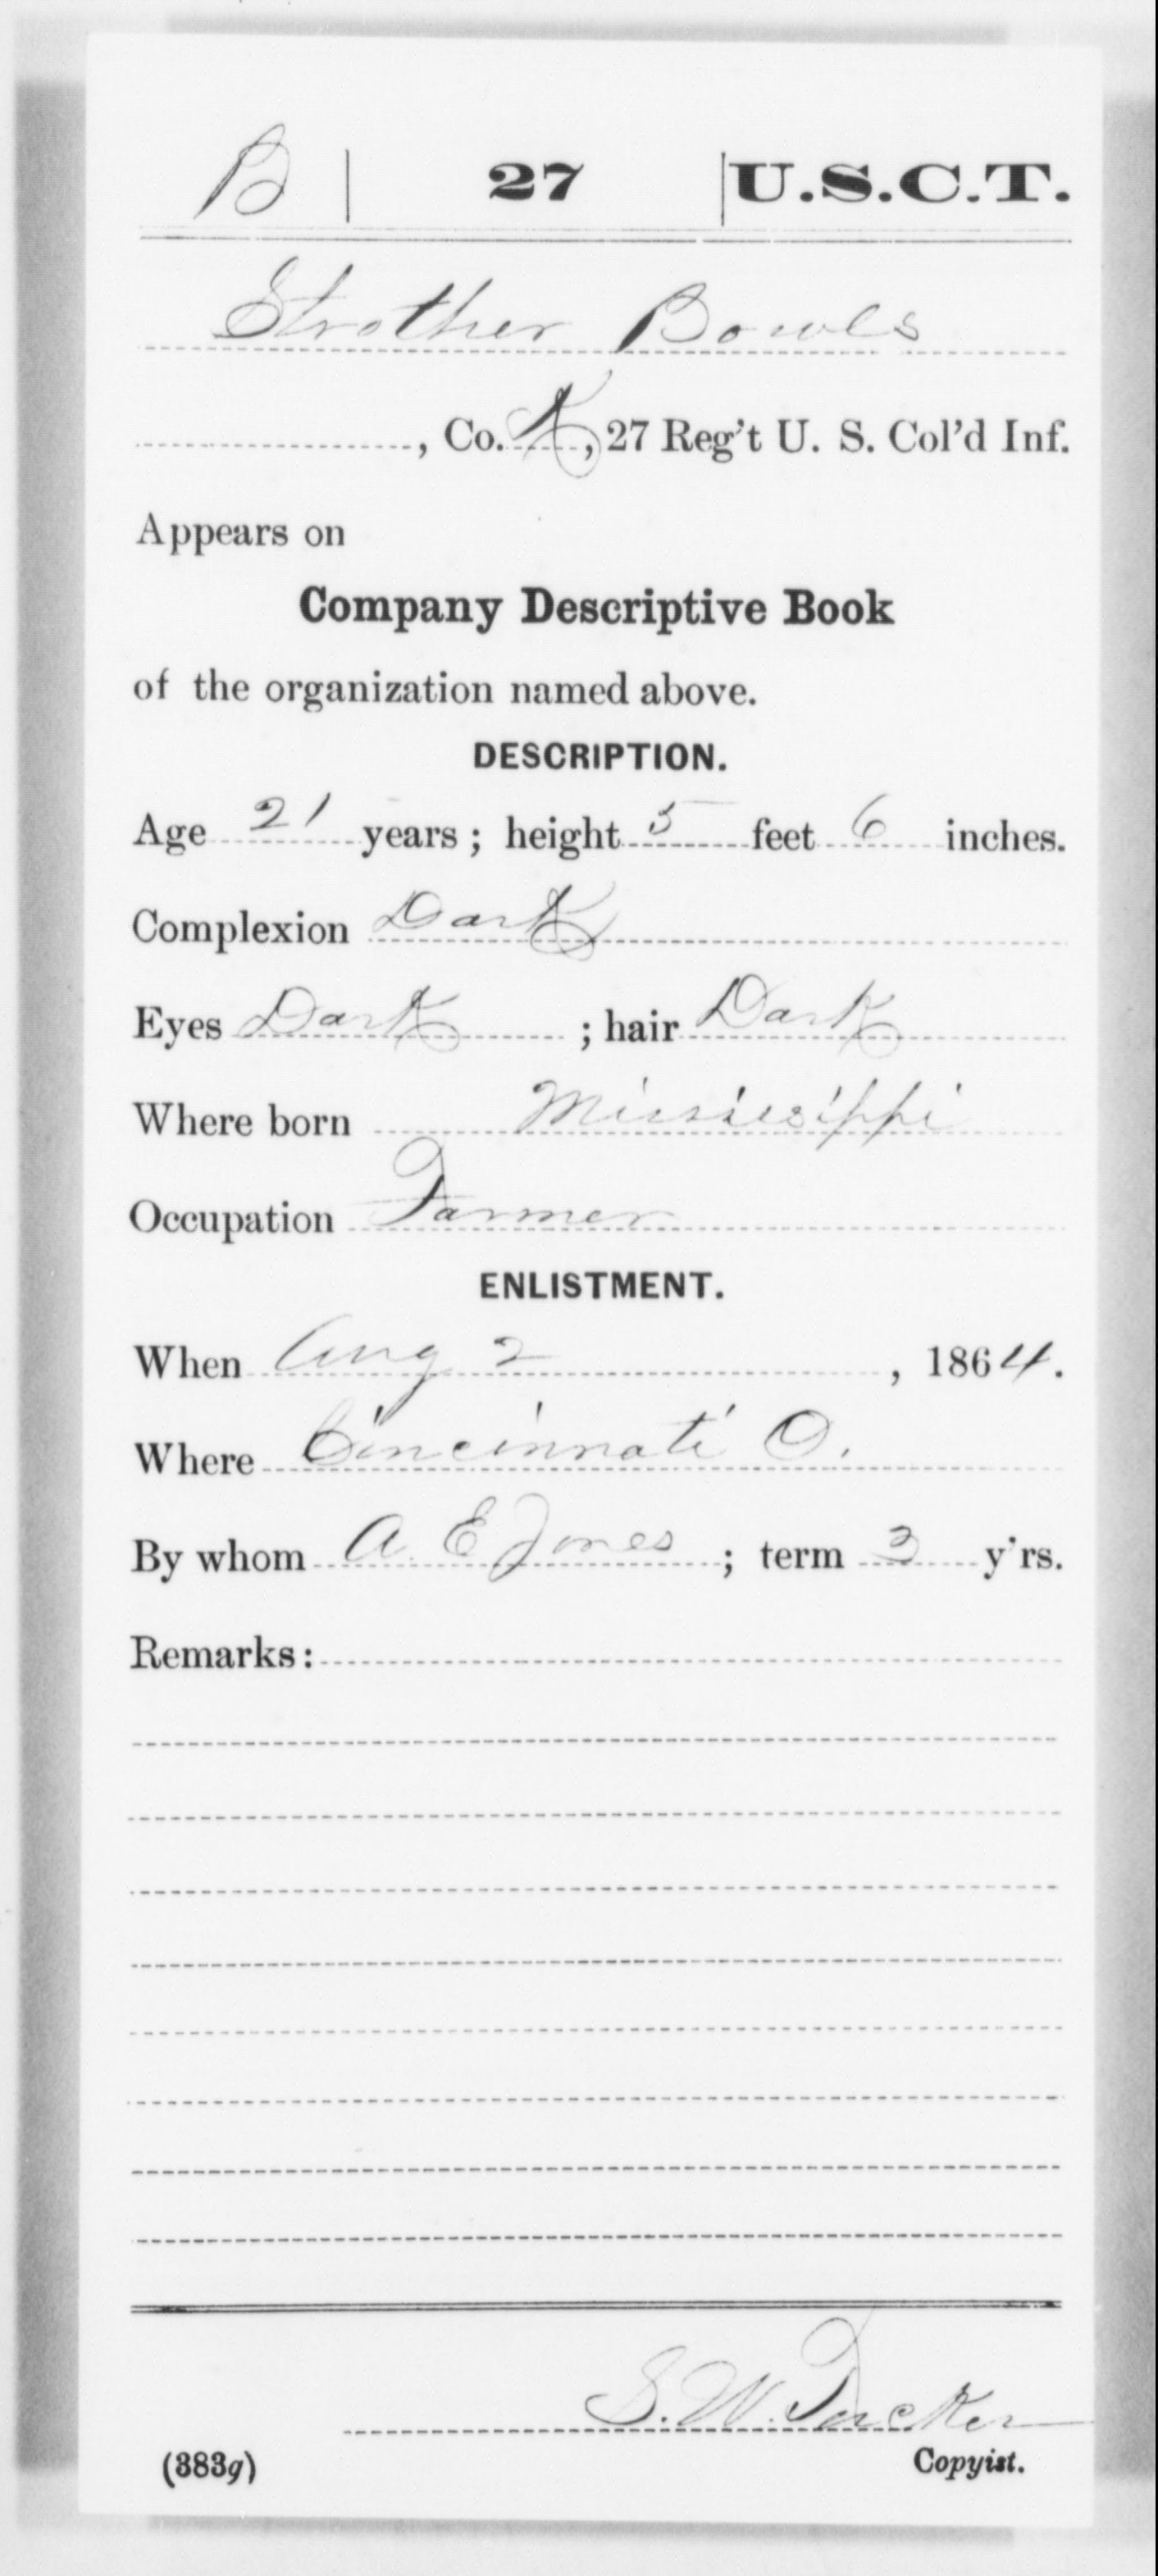 B | 27 | U.S.C.T.
Strother Bowls
, Co. K, 27 Reg't U. S. Col'd Inf.
Appears on
Company Descriptive Book
of the organization named above.
DESCRIPTION.
Age 21 years; height 5 feet 6 inches.
Complexion Dark
Eyes Dark ; hair Dark
Where born Mississippi
Occupation Farmer
ENLISTMENT.
When Aug 2, 1864.
Where Cincinnati O.
By whom A. E Jones; term 3 y'rs.
Remarks:
S. W. Tucker
(383g) Copyist.